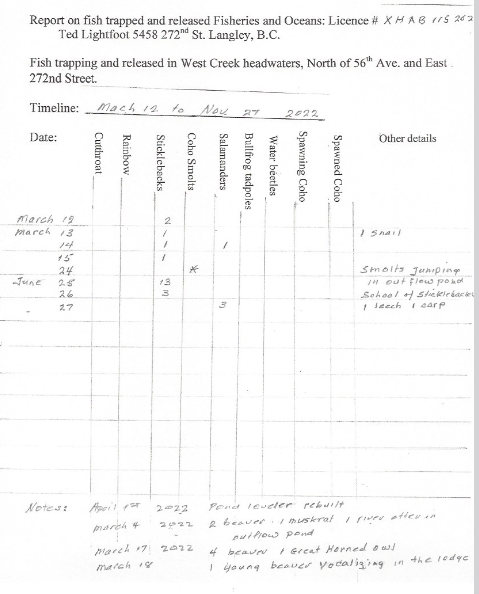 Report on fish trapped and released Fisheries and Oceans: Licence # X H A B 115 262
Ted Lightfoot 5458 272nd St. Langley, B.C.
Fish trapping and released in West Creek headwaters, North of 56th Ave. and East
272nd Street.
Timeline: Mach 12 to Nov 27 2022
Date: Cutthroat Rainbow Sticklebacks Coho Smolts Salamanders Bullfrog tadpoles Water beetles Spawning Coho Spawned Coho Other details
March 2
March 13 1 1 Snail
14 1 1
15 1
24 * Smolts Jumping
June 25 13 in outflow pond
26 3 School of Sticklebacks
27 3 1 leech 1 carp
Notes: April 1st 2022 Pond leveler rebuilt
March 4 2022 2 beaver 1 muskrat 1 river otter in
outflow pond
March 17 2022 4 beaver 1 Great Horned Owl
March 18 1 young beaver Vocalizing in the lodge